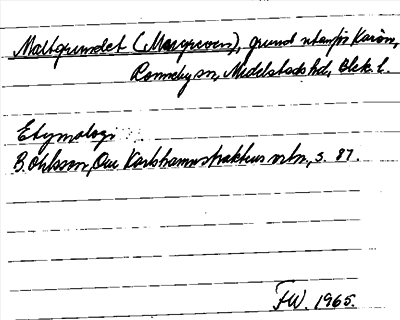 Maltgrundet (Margreven), grund utanför Karön,
Ronneby sn, Medelstads hd, Blek. l.
Etymologi
B. Ohlsson, Om Karlshamnstraktens ortn., s. 87.
FW. 1965.